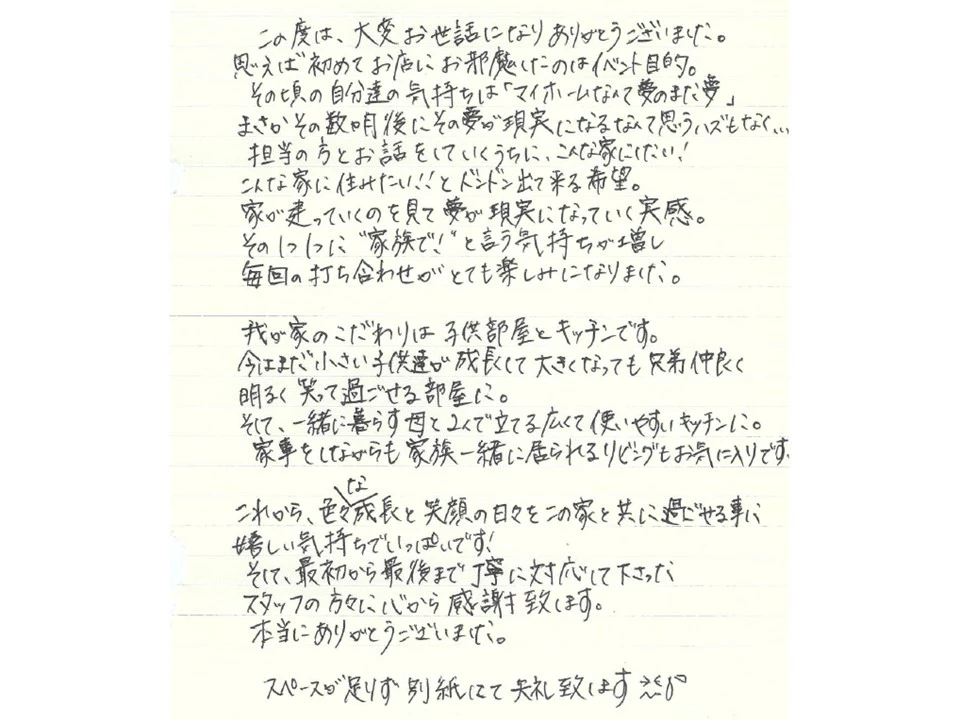 この度は、大変お世話になりありがとうございました。
思えば初めてお店にお邪魔したのはイベント目的。
その頃の自分達の気持ちは「マイホームなんて夢のまた夢」
まさかその数か月後にその夢が現実になるなんて思うハズもなく...
担当の方とお話をしていくうちに、こんな家にしたい!
こんな家に住みたい!!とドンドン出て来る希望。
家が建っていくのを見て夢が現実になっていく実感。
その1つ1つに“家族で!”と言う気持ちが増し
毎回の打ち合わせがとても楽しみになりました。
我が家のこだわりは子供部屋とキッチンです。
今はまだ小さい子供達が成長して大きくなっても兄弟仲良く
明るく笑って過ごせる部屋に。
そして、一緒に暮らす母と2人で立てる広くて使いやすいキッチンに。
家事をしながらも家族一緒に居られるリビングもお気に入りです
これから、色々な成長と笑顔の日々をこの家と共に過ごせる事に
嬉しい気持ちでいっぱいです!
そして、最初から最後まで丁寧に対応して下さった
スタッフの方々に心から感謝致します。
本当にありがとうございました。
スペースが足りず別紙にて失礼致します